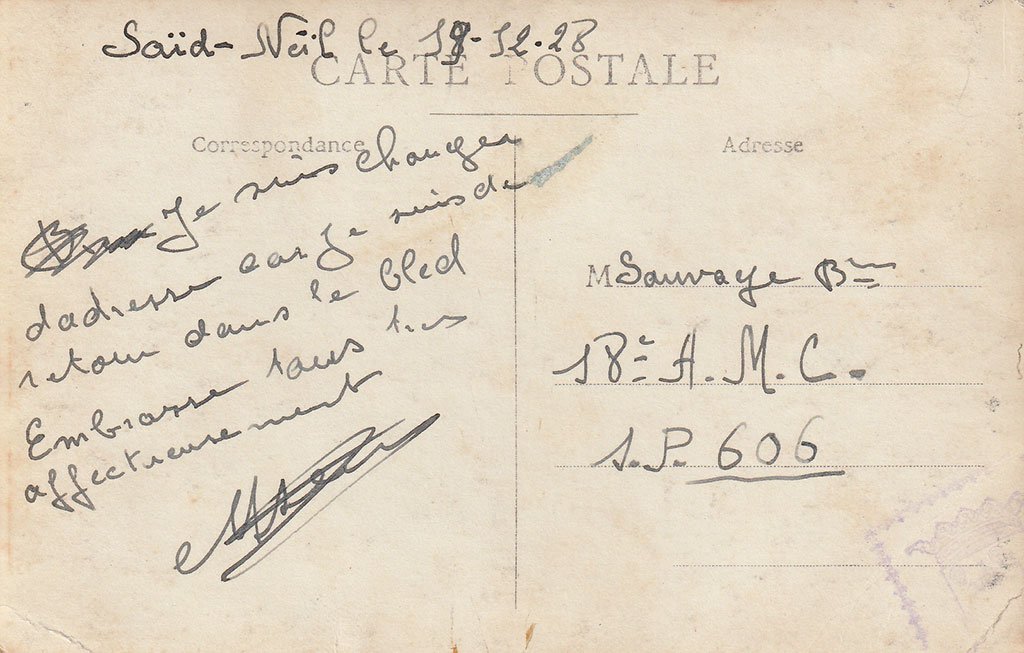 Saïd-Neïl le 19-12-28
CARTE POSTALE
Correspondance
Adresse
Je suis changer
dadresse car Je suis de
retour dans le bled
Embrasse tous très
affectieusement
M Sauvage Bm
18e A. M. C.
S.P. 606